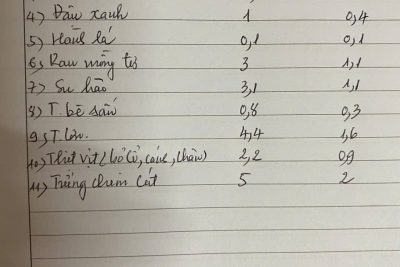 4, Đậu xanh 1 0,4
5, Hành lá 0,1 0,1
6, Rau mồng tơi 3 1,1
7, Su hào 3,1 1,1
8, T. bê sấn 0,8 0,3
9, T. lợn. 4,4 1,6
10, Thịt vịt (bỏ cổ, cánh, chân) 2,2 0,9
11, Trứng chim cút 5 2